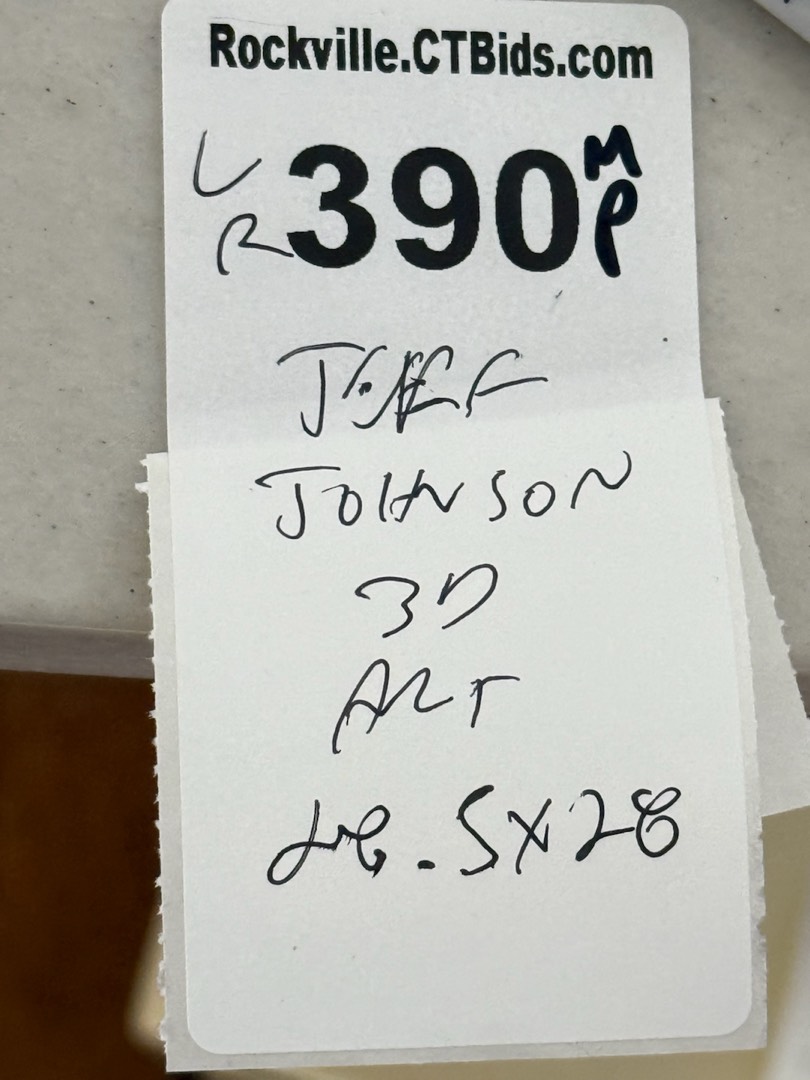 Rockville.CTBids.com
LR 390 MP
JEFF
JOHNSON
3D
ART
28.5X28